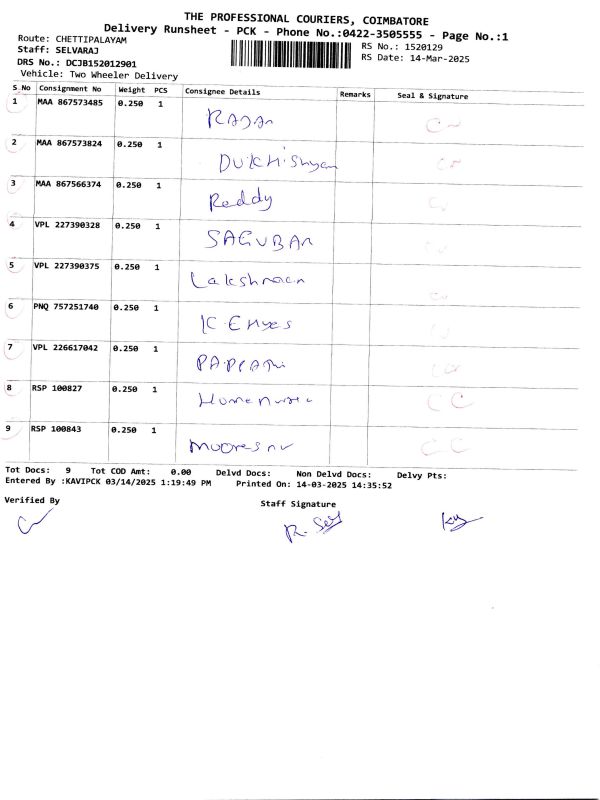 THE PROFESSIONAL COURIERS, COIMBATORE
Delivery Runsheet - PCK - Phone No.:0422-3505555 - Page No.:1
Route: CHETTIPALAYAM RS No.: 1520129
Staff: SELVARAJ RS Date: 14-Mar-2025
DRS No.: DCJB152012901
Vehicle: Two Wheeler Delivery
S No Consignment No Weight PCS Consignee Details Remarks Seal & Signature
1 MAA 867573485 0.250 1 RAJAN
2 MAA 867573824 0.250 1
3 MAA 867566374 0.250 1 Reddy
4 VPL 227390328 0.250 1 SAGUBAR
5 VPL 227390375 0.250 1 Lakshman
6 PNQ 757251740 0.250 1
7 VPL 226617042 0.250 1
8 RSP 100827 0.250 1 CC
9 RSP 100843 0.250 1 CC
Tot Docs: 9 Tot COD Amt: 0.00 Delvd Docs: Non Delvd Docs: Delvy Pts:
Entered By :KAVIPCK 03/14/2025 1:19:49 PM Printed On: 14-03-2025 14:35:52
Verified By Staff Signature